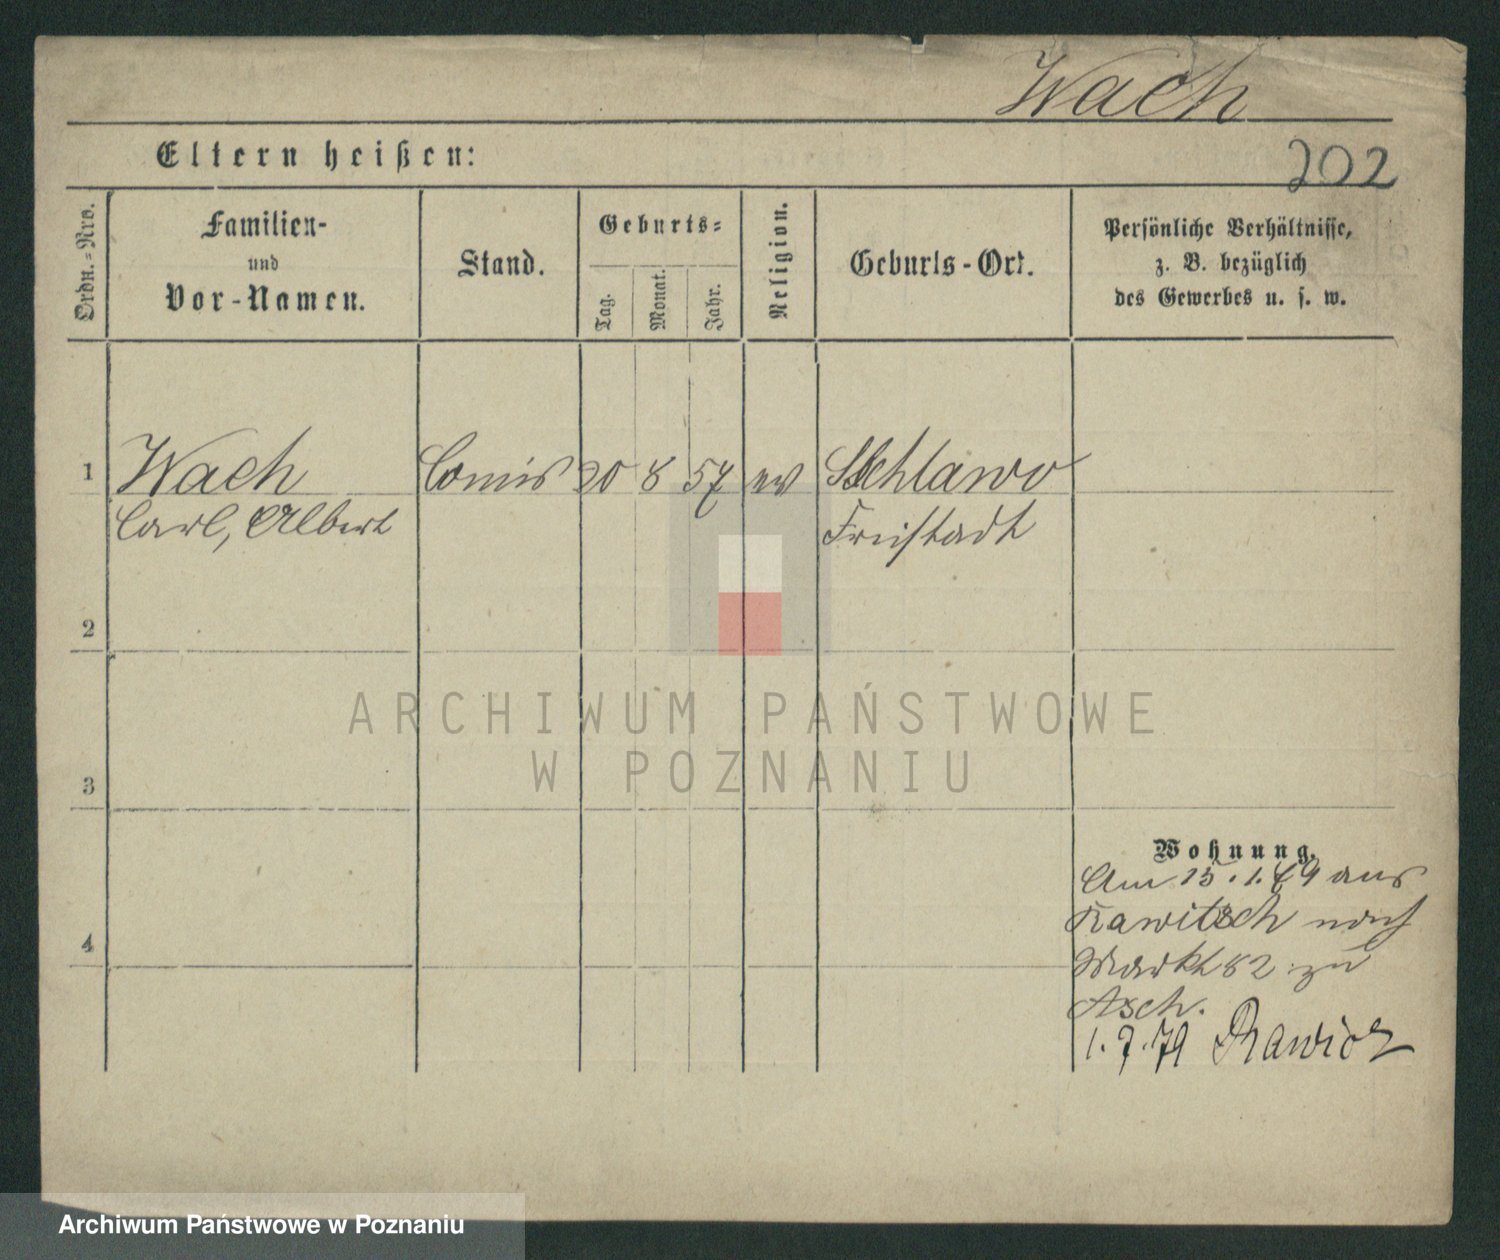 Wach
Eltern heißen:
202
Ordn.=Nro.
Familien-
und
Vor-Namen.
Stand.
Geburts=
Tag.
Monat.
Jahr.
Religion.
Geburts-Ort.
Persönliche Verhältnisse,
z. B. bezüglich
des Gewerbes u. s. w.
1
Wach
Comis
20
8
57
ev
Schlawo
Carl, Albert
Freistadt
2
ARCHIWUM PAŃSTWOWE
W POZNANIU
3
Wohnung.
Am 15.1.79 aus
Rawitsch nach
4
Markt 82 zu
Asch.
1.7.79 Rawicz
Archiwum Państwowe w Poznaniu